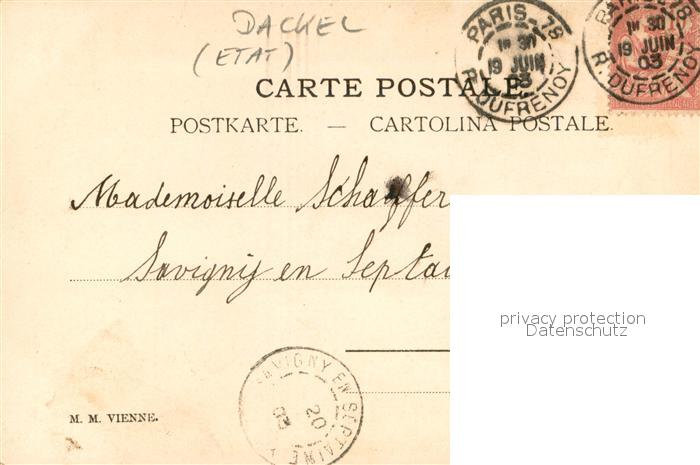 DACKEL
(ETAT)
PARIS-78
1E 30
19 JUIN
03
R. DUFRENOY
PARIS-78
1E 30
19 JUIN
03
R. DUFRENOY
CARTE POSTALE.
POSTKARTE. — CARTOLINA POSTALE.
Mademoiselle Schaffer
Savigny en Septai
privacy protection
Datenschutz
SAVIGNY EN SEPTAINE
20
03
M. M. VIENNE.